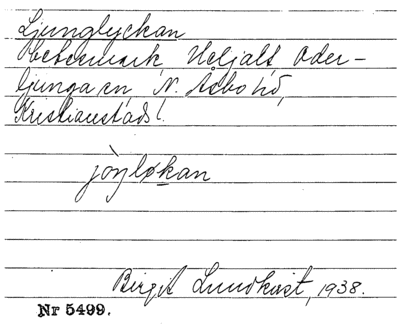 Ljunglyckan
Betesmark, Heljalt, Oder-
ljunga sn, N. Åsbo hd,
Kristianstads l.
jòŋløkan
Birgit Lundkvist, 1938.
Nr 5499.